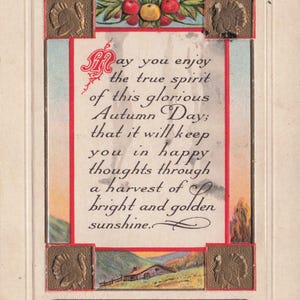 May you enjoy
the true spirit
of this glorious
Autumn Day;
that it will keep
you in happy
thoughts through
a harvest of
bright and golden
sunshine.